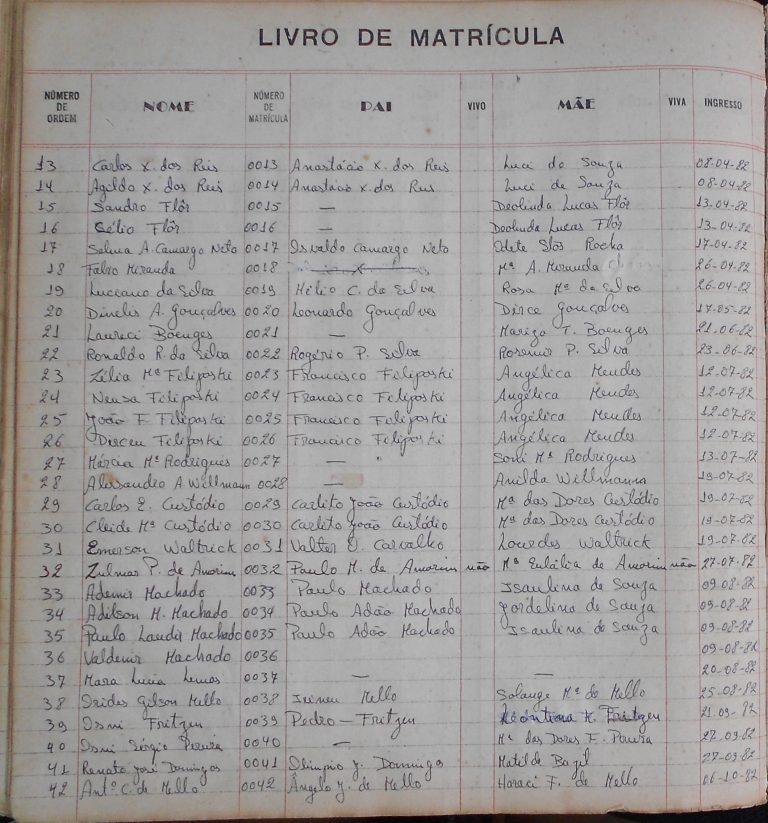 LIVRO DE MATRÍCULA
NÚMERO DE ORDEM NOME NÚMERO DE MATRÍCULA PAI VIVO MÃE VIVA INGRESSO
13 Carlos X. dos Reis 0013 Anastácio X. dos Reis Luci de Souza 08-04-82
14 Agildo X. dos Reis 0014 Anastácio X. dos Reis Luci de Souza 08-04-82
15 Sandro Flôr 0015 — Deolinda Lucas Flôr 13-04-82
16 Célio Flôr 0016 — Deolinda Lucas Flôr 13-04-82
17 Selma A. Camargo Neto 0017 Osvaldo Camargo Neto Odete Stos Rocha 17-04-82
18 Fabio Miranda 0018 Mª A. Miranda 26-04-82
19 Luciano da Silva 0019 Hélio C. da Silva Rosa Mª da Silva 26-04-82
20 Dinelis A. Gonçalves 0020 Leonardo Gonçalves Dirce Gonçalves 17-05-82
21 Laureci Boenges 0021 — Mariza T. Boenges 21-06-82
22 Ronaldo R. da Silva 0022 Rogério P. Silva Rosemir P. Silva 23-06-82
23 Zélia Mª Filiposki 0023 Francisco Filiposki Angélica Mendes 12-07-82
24 Neusa Filiposki 0024 Francisco Filiposki Angélica Mendes 12-07-82
25 João F. Filiposki 0025 Francisco Filiposki Angélica Mendes 12-07-82
26 Dirceu Filiposki 0026 Francisco Filiposki Angélica Mendes 12-07-82
27 Márcia Mª Rodrigues 0027 — " Soni Mª Rodrigues 13-07-82
28 Alessandro A. Willmann 0028 — Anilda Willmann 19-07-82
29 Carlos E. Custódio 0029 Carlito João Custódio Mª das Dores Custódio 19-07-82
30 Cleide Mª Custódio 0030 Carlito João Custódio Mª das Dores Custódio 19-07-82
31 Emerson Waltrick 0031 Valter O. Carvalho Lourdes Waltrick 19-07-82
32 Zulmar P. de Amorim 0032 Paulo M. de Amorim não Mª Eulália de Amorim não 27-07-82
33 Ademir Machado 0033 Paulo Machado Isaulina de Souza 09-08-82
34 Adilson M. Machado 0034 Paulo Adão Machado Jordelina de Souza 09-08-82
35 Paulo Laudir Machado 0035 Paulo Adão Machado Isaulina de Souza 09-08-82
36 Valdenir Machado 0036 09-08-82
37 Mara Lucia Lemos 0037 — — 20-08-82
38 Irides Gilson Mello 0038 Irineu Mello Solange Mª de Mello 25-08-82
39 Osni Fritzen 0039 Pedro — Fritzen Fritzen 21-09-82
40 Osni Sérgio Pereira 0040 — Mª das Dores F. Pereira 27-09-82
41 Renato José Domingos 0041 Olimpio J. Domingos Matilde Bazil 27-09-82
42 Antº C. de Mello 0042 Ângelo J. de Mello Horaci F. de Mello 06-10-82